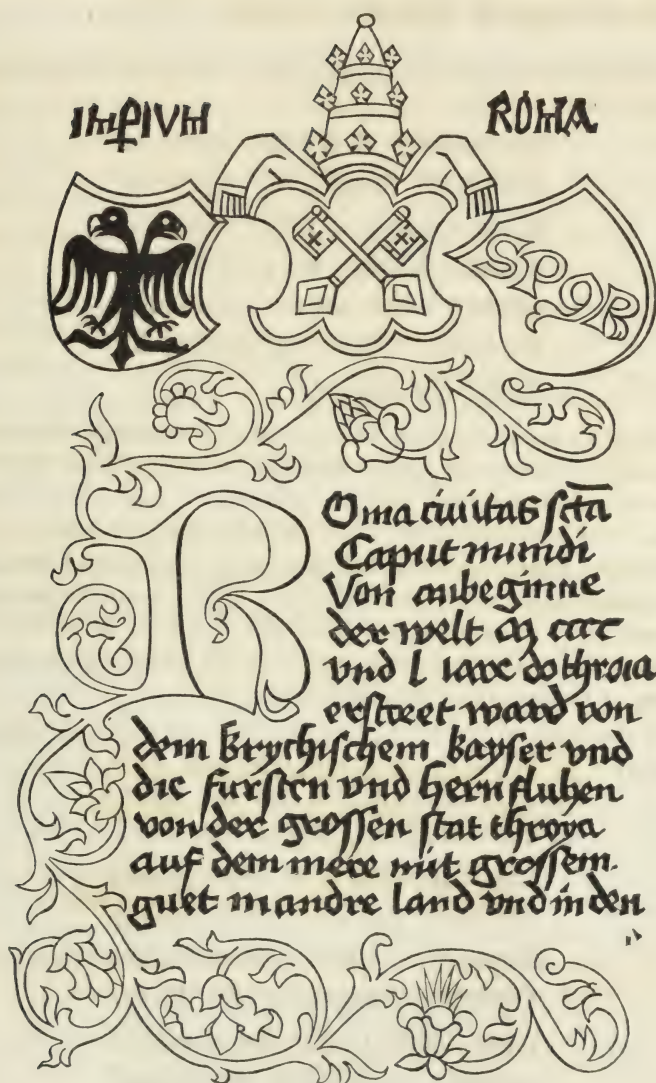 IMPIVM
ROMA
SPQR
ROma ciuitas sctā
Caput mundi
Von anbeginne
der welt
vnd l iare do throia
erstoeet ward von
dem krychischem kayser vnd
die fursten vnd hern fluhen
von der grossen stat throya
auf dem mere mit grossem
guet in andre land vnd in den